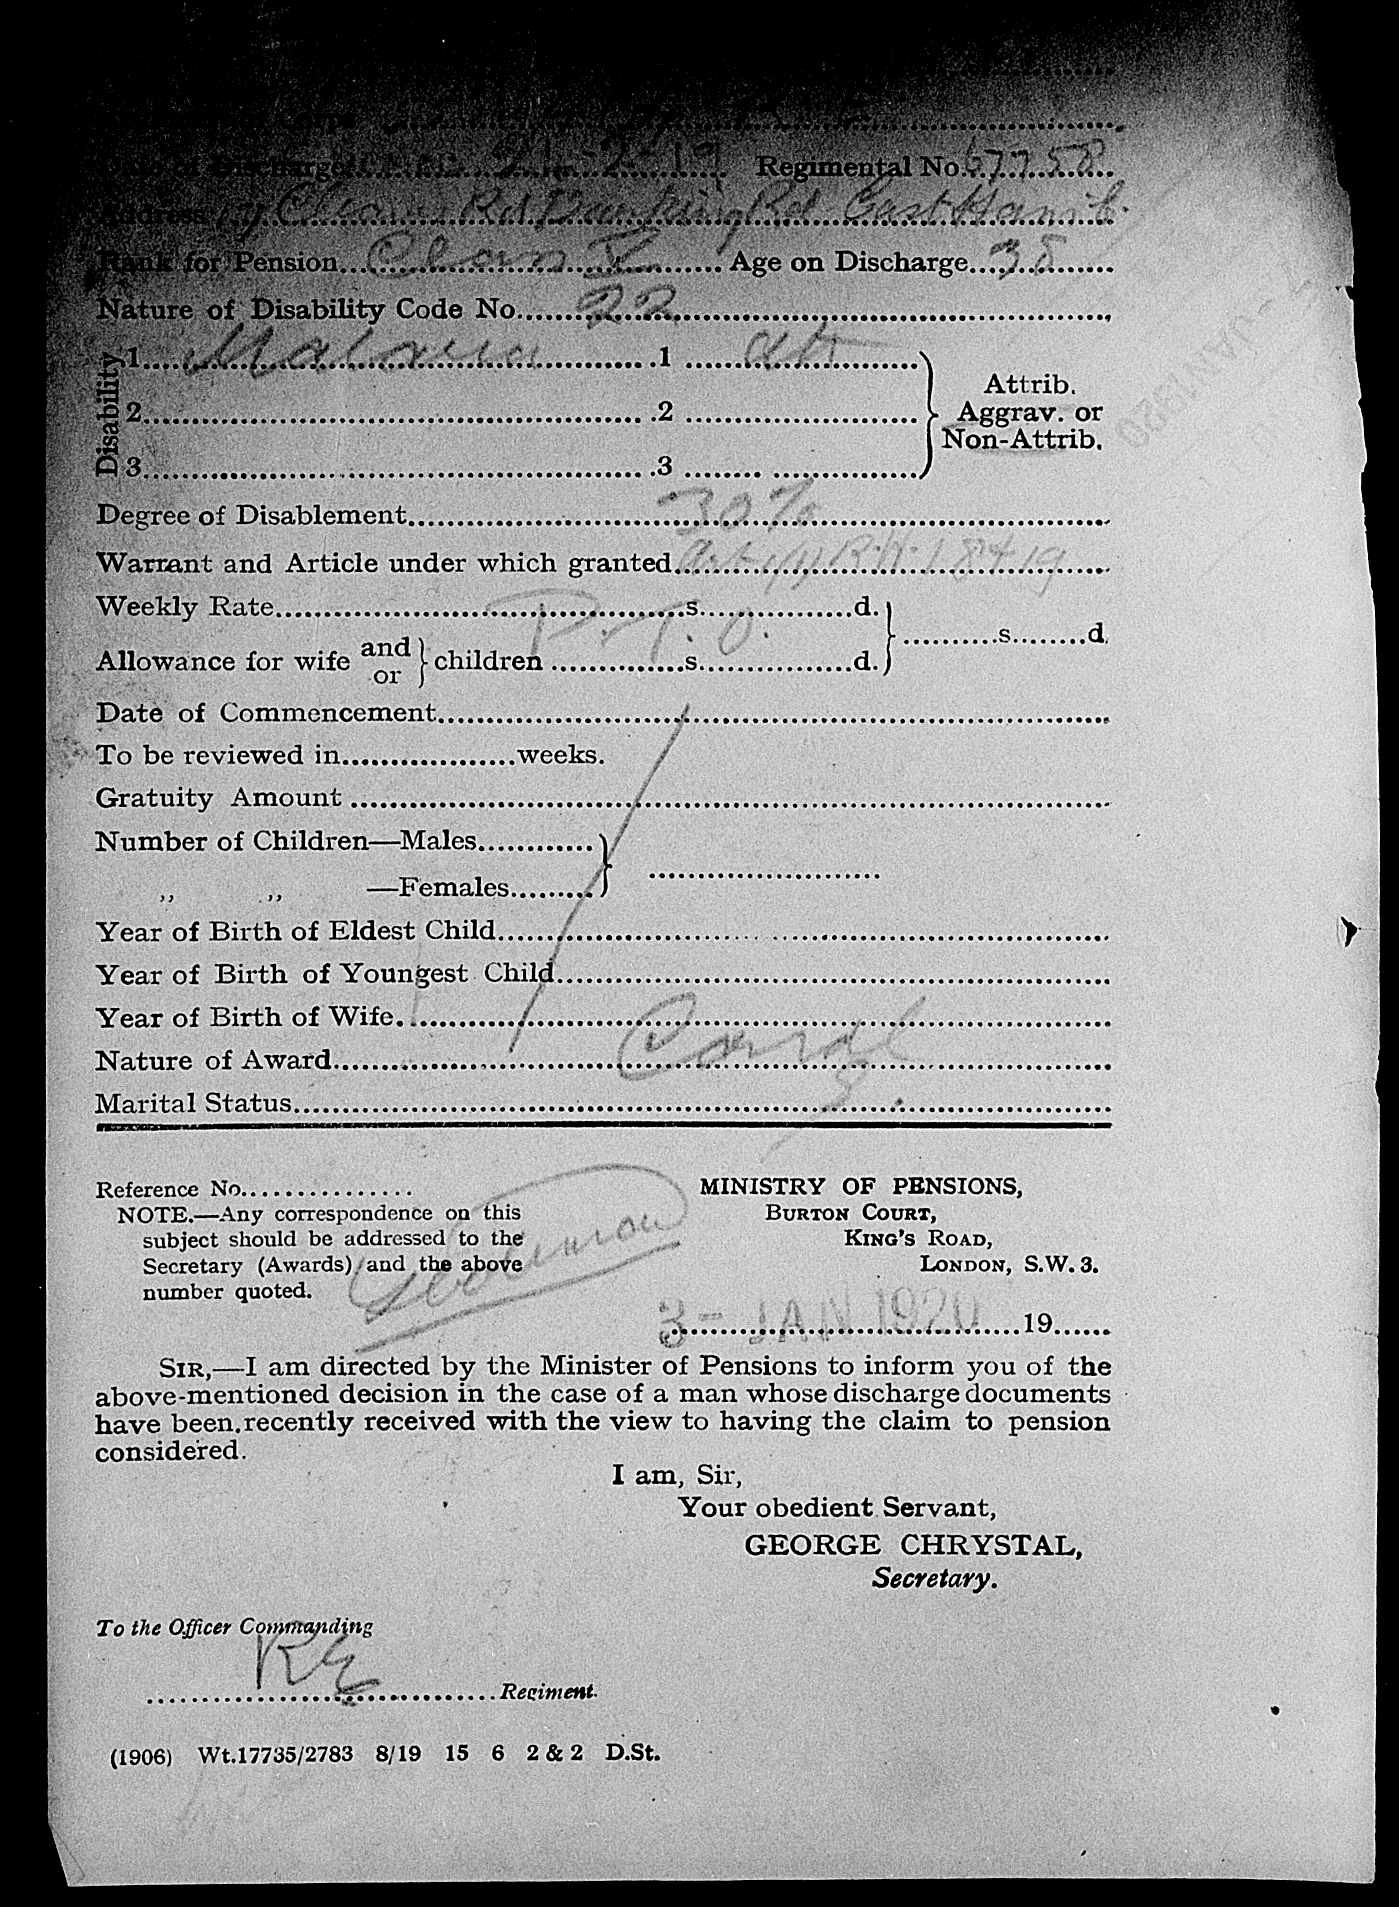 Date of Discharge 21-2-19 Regimental No. 67758
Address Rd Rd East Ham E.
Rank for Pension Class V Age on Discharge 38
Nature of Disability Code No. 22
Disability
1 Malaria 1 att
2 2
3 3
Attrib.
Aggrav. or
Non-Attrib.
Degree of Disablement 30%
Warrant and Article under which granted Art 1(1) R.W. 1919
Weekly Rate s. d.
P.T.O.
s. d.
Allowance for wife and or children s. d.
Date of Commencement
To be reviewed in weeks.
Gratuity Amount
Number of Children—Males
,, ,, —Females
Year of Birth of Eldest Child
Year of Birth of Youngest Child
Year of Birth of Wife
Nature of Award
Marital Status
Reference No.
MINISTRY OF PENSIONS,
NOTE.—Any correspondence on this
BURTON COURT,
subject should be addressed to the
KING'S ROAD,
Secretary (Awards) and the above
LONDON, S.W.3.
number quoted.
3 - JAN 1920 19
SIR,—I am directed by the Minister of Pensions to inform you of the
above-mentioned decision in the case of a man whose discharge documents
have been recently received with the view to having the claim to pension
considered.
I am, Sir,
Your obedient Servant,
GEORGE CHRYSTAL,
Secretary.
To the Officer Commanding
RE
Regiment.
(1906) Wt.17735/2783 8/19 15 6 2 & 2 D.St.